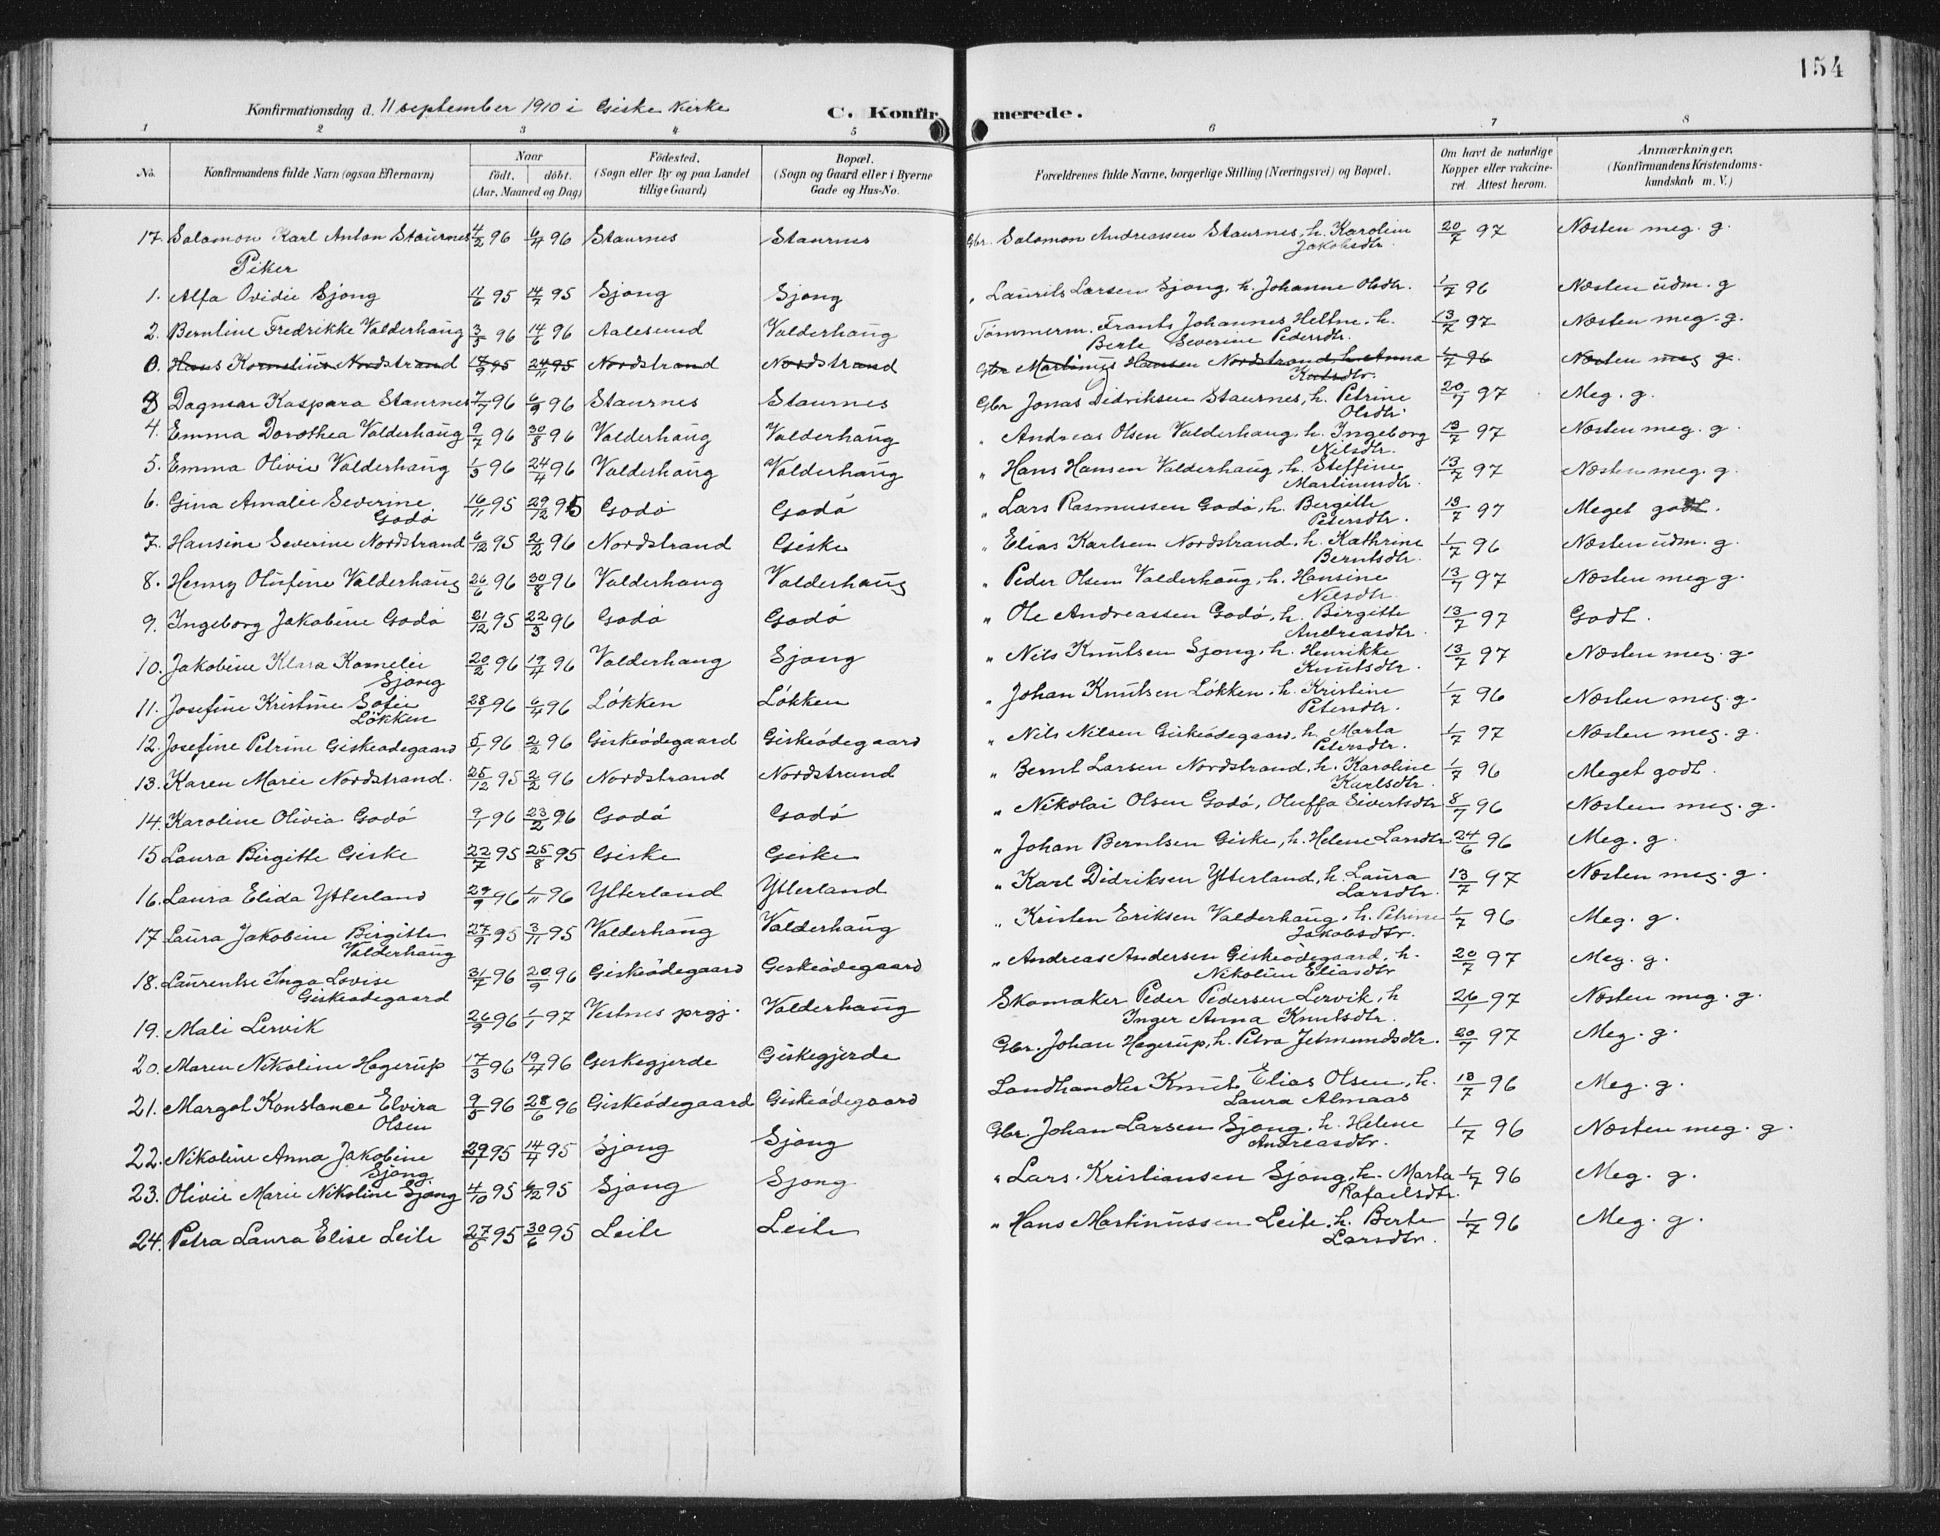 154
Konfirmationsdag d. 11 september 1910 i Giske Kirke C. Konfirmerede.
1 2 3 4 5 6 7 8
No. Konfirmandens fulde Navn (ogsaa Efternavn) Naar født. døbt. (Aar, Maaned og Dag) Fødested. (Sogn eller By og paa Landet tillige Gaard) Bopæl. (Sogn og Gaard eller i Byerne Gade og Hus-No. Forældrenes fulde Navne, borgerlige Stilling (Næringsvei) og Bopæl. Om havt de naturlige Kopper eller vakcineret. Attest herom. Anmærkninger. (Konfirmandens Kristendomskundskab m. V.)
17. Salamon Karl Anton Staurnes 4/2 96 6/4 96 Staurnes Staurnes Gbr. Salomon Andreassen Staurnes, h. Karolin Jakobsdtr. 20/7 97 Næsten meg. g.
Piker
1. Alfa Ovidie Sjong 11/6 95 14/7 95 Sjong Sjong " Laurits Larsen Sjong, h. Johanne Olsdtr. 1/7 96 Næsten udm. g
2. Berntine Fredrikke Valderhaug 3/5 96 14/6 96 Aalesund Valderhaug Tømmerm. Frants Johannes Heltne. h. Berte Severine Pedersdtr. 13/7 97 Næsten meg. g.
0. Hans Kornelius Nordstrand 17/9 95 24/11 95 Nordstrand Nordstrand Gbr Martinus Hansen Nordstrand, h. Anna Knutsdtr. 1/7 96 Næsten meg g.
3 Dagmar Kaspara Staurnes 7/7 96 6/9 96 Staurnes Staurnes Gbr Jonas Didriksen Staurnes, h. Petrine Olsdtr. 20/7 97 Meg. g.
4. Emma Dorothea Valderhaug 9/7 96 30/8 96 Valderhaug Valderhaug " Andreas Olsen Valderhaug, h. Ingeborg Nilsdtr. 13/7 97 Næsten meg. g.
5. Emma Olivie Valderhaug 1/3 96 24/4 96 Valderhaug Valderhaug " Hans Hansen Valderhaug, h. Steffine Martinusdtr. 13/7 97 Næsten meg. g.
6. Gina Amalie Severine Godø 16/11 95 29/12 95 Godø Godø " Lars Rasmussen Godø, h. Bergitte Petersdtr. 13/7 97 Meget godt.
7. Hansine Severine Nordstrand 6/12 95 2/2 96 Nordstrand Giske " Elias Karlsen Nordstrand. h. Kathrine Berntsdtr. 1/7 96 Næsten udm. g.
8. Henny Olufine Valderhaug 26/6 96 30/8 96 Valderhaug Valderhaug " Peder Olsen Valderhaug, h. Hansine Nilsdtr. 13/7 97 Næsten meg g.
9. Ingeborg Jakobine Godø 21/12 95 22/3 96 Godø Godø " Ole Andreassen Godø, h. Birgitte Andreasdtr. 13/7 97 Godt.
10. Jakobine Klara Kornelie Sjong 20/2 96 19/4 96 Valderhaug Sjong " Nils Knutsen Sjong, h. Henrikke Knutsdtr. 13/7 97 Næsten meg. g.
11. Josefine Kristine Sofie Løkken 28/1 96 6/4 96 Løkken Løkken " Johan Knutsen Løkken, h. Kristine Petersdtr. 1/7 96 Næsten meg. g.
12. Josefine Petrine Giskeødegaard 5/1 96 2/2 96 Giskeødegaard Giskeødegaard " Nils Nilsen Giskeødegaard, h. Marta Petersdtr. 1/7 97 Næsten meg. g.
13. Karen Marie Nordstrand. 25/12 95 2/2 96 Nordstrand Nordstrand " Bernt Larsen Nordstrand, h. Karoline Karlsdtr. 1/7 96 Meget godt.
14. Karoline Olivia Godø 9/1 96 23/2 96 Godø Godø " Nikolai Olsen Godø, Oluffa Sivertsdtr 8/7 96 Næsten meg. g.
15 Laura Birgitte Giske 22/7 95 25/8 95 Giske Giske " Johan Berntsen Giske, h. Helene Larsdtr 24/6 96 Meg. g.
16. Laura Elida Ytterland 29/9 96 1/11 96 Ytterland Ytterland " Karl Didriksen Ytterland, h. Laura Larsdtr. 13/7 97 Næsten meg. g.
17 Laura Jakobine Birgitte Valderhaug 27/9 95 3/11 95 Valderhaug Valderhaug " Kristen Eriksen Valderhaug, h. Petrine Jakobsdtr. 1/7 96 Meg. g.
18. Laurentse Inga Lovise Giskeødegaard 31/7 96 20/9 96 Giskeødegaard Giskeødegaard " Andreas Andersen Giskeødegaard, h. Nikoline Eliasdtr 20/7 97 Meg. g.
19. Mali Lervik 26/9 96 1/1 97 Vestnes prgj. Valderhaug Skomaker Peder Pedersen Lervik, h Inger Anna Knutsdtr. 26/1 97 Næsten meg. g.
20. Maren Nikoline Hagerup 17/3 96 19/4 96 Giskegjerde Giskegjerde Gbr. Johan Hagerup, h. Petra Jetmundsdtr. 20/7 97 Meg. g.
21. Margot Konstance Elvira Olsen 9/5 96 28/6 96 Giskeødegaard Giskeødegaard Landhandler Knut Elias Olsen, h. Laura Almaas 13/7 96 Meg. g.
22. Nikoline Anna Jakobine Sjong. 29/1 95 14/4 95 Sjong Sjong Gbr. Johan Larsen Sjong, h. Helene Andreasdtr. 1/7 96 Næsten meg. g.
23. Olivie Marie Nikoline Sjong 4/10 95 6/12 95 Sjong Sjong " Lars Kristiansen Sjong, h. Marta Rafaelsdtr. 1/7 96 Meg. g.
24. Petra Laura Elise Leite 27/5 95 30/6 95 Leite Leite " Hans Martinussen Leite, h. Berte Larsdtr. 1/7 96 Meg. g.